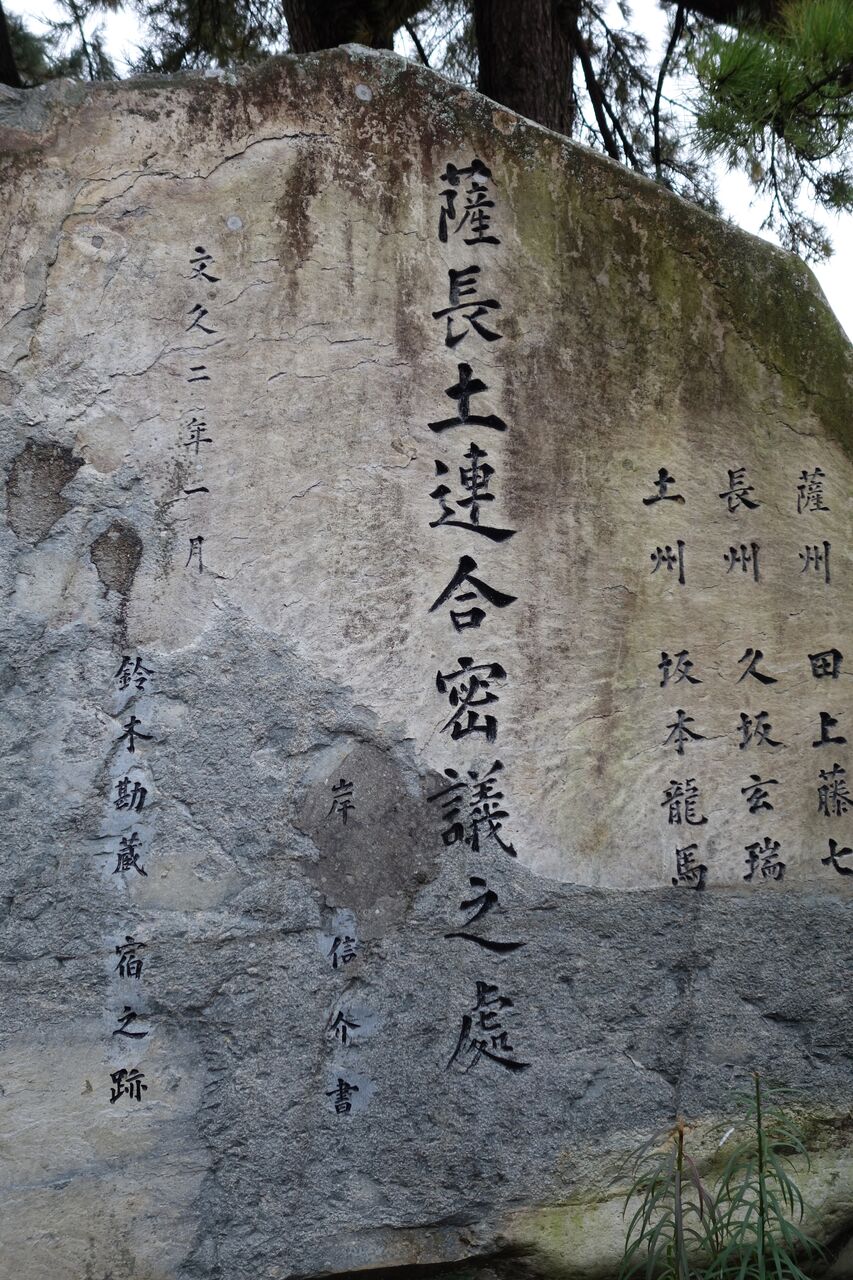 薩州 田上藤七
長州 久坂玄瑞
土州 坂本龍馬
薩長土連合密議之處
岸信介書
文久二年一月
鈴木勘蔵 宿之跡